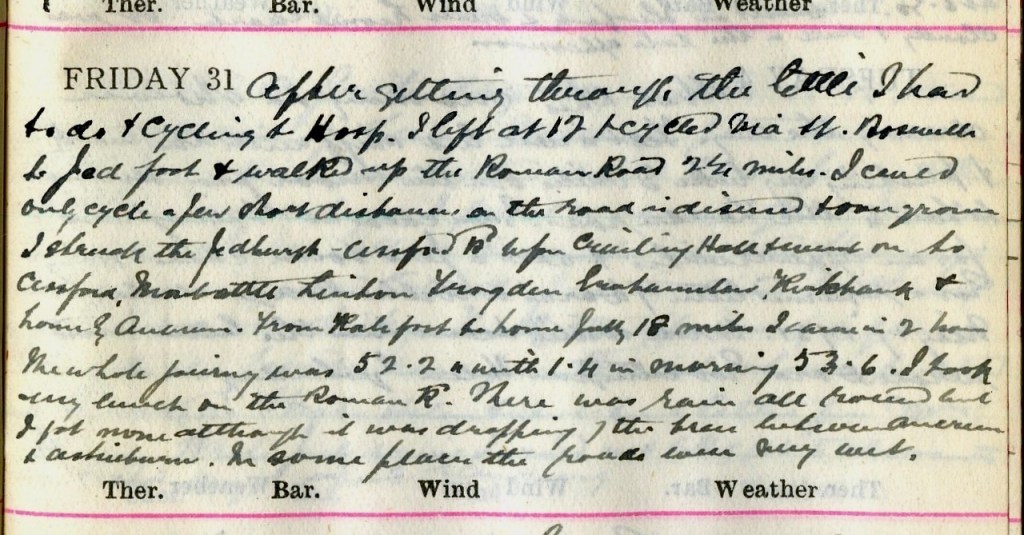 Ther. Bar. Wind Weather
FRIDAY 31 After getting through the little I had
to do & cycling to Hosp. I left at 12 & cycled via St. Boswells
to Jed foot & walked up the Roman Road 2¼ miles. I could
only cycle a few short distances as the road is disused & overgrown
I struck the Jedburgh - Cessford Rd upon Crailing Hall & went on to
Cessford, Morebattle Linton Frogden Kirkbank &
home by Ancrum. From Kalefoot to home fully 18 miles I came in 2 hours
The whole journey was 52.2 & with 1.4 in morning 53.6. I took
my lunch on the Roman Rd. There was rain all round but
I got none although it was dropping the trees between Ancrum
& Lessudden. In some places the roads were very wet.
Ther. Bar. Wind Weather